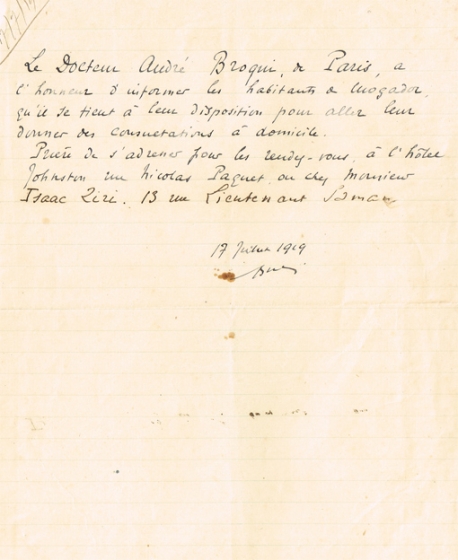 17/7/19
Le Docteur André Broqui, de Paris, a
l'honneur d'informer les habitants de Mogador,
qu'il se tient à leur disposition pour aller leur
donner des consultations à domicile.
Prière de s'adresser pour les rendez-vous, à l'hôtel
Johnston rue Nicolas Paquet ou chez Monsieur
Isaac Ziri. 13 rue Lieutenant
17 Juillet 1919